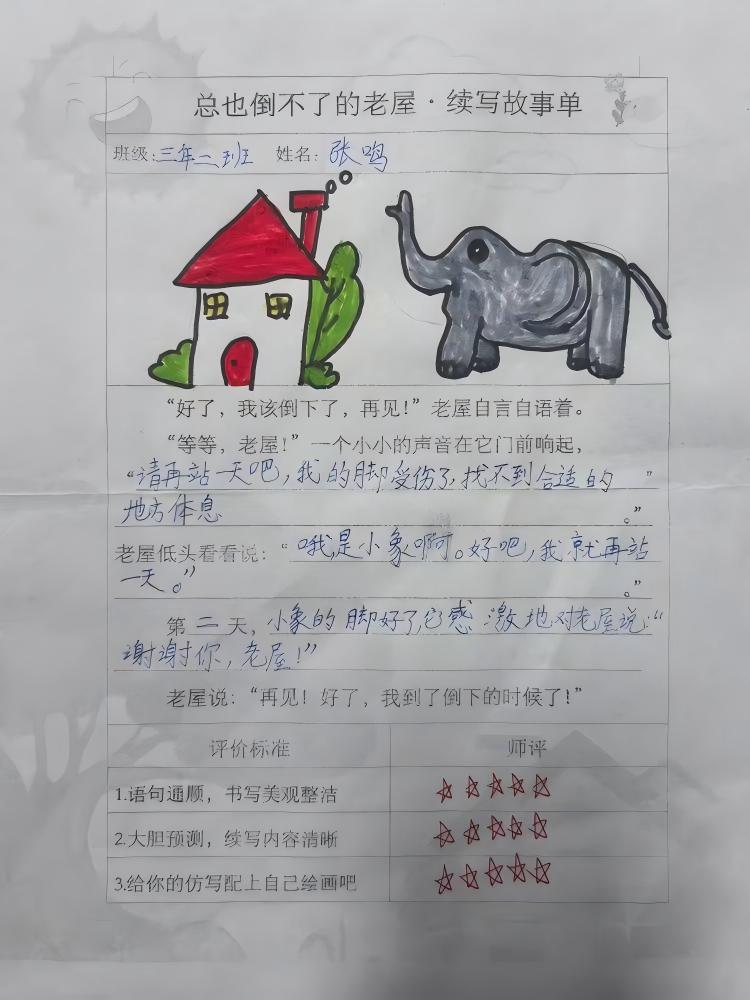 总也倒不了的老屋·续写故事单
班级:三年二班 姓名:张鸣
“好了，我该倒下了，再见!”老屋自言自语着。
“等等，老屋!”一个小小的声音在它门前响起，
“请再站一天吧，我的脚受伤了，找不到合适的”
地方体息。”
老屋低头看看说：“哦，是小象啊。好吧，我就再站
一天。”。”
第二天，小象的脚好了，它感激地对老屋说：“
谢谢你，老屋！”
老屋说：“再见！好了，我到了倒下的时候了!”
评价标准 师评
1.语句通顺，书写美观整洁 ☆☆☆☆☆
2.大胆预测，续写内容清晰 ☆☆☆☆☆
3.给你的仿写配上自己绘画吧 ☆☆☆☆☆